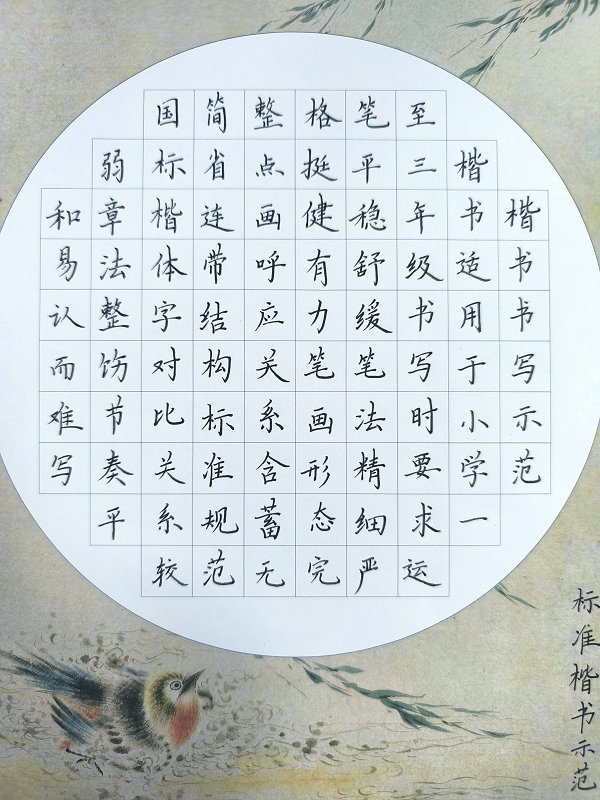 楷书书写示范
楷书适用于小学一
至三年级书写时要求运
笔平稳舒缓笔法精细严
格挺健有力笔画形态完
整点画呼应关系含蓄无
简省连带结构标准规范
国标楷体字对比关系较
弱章法整饬节奏平
和易认而难写
标准楷书示范